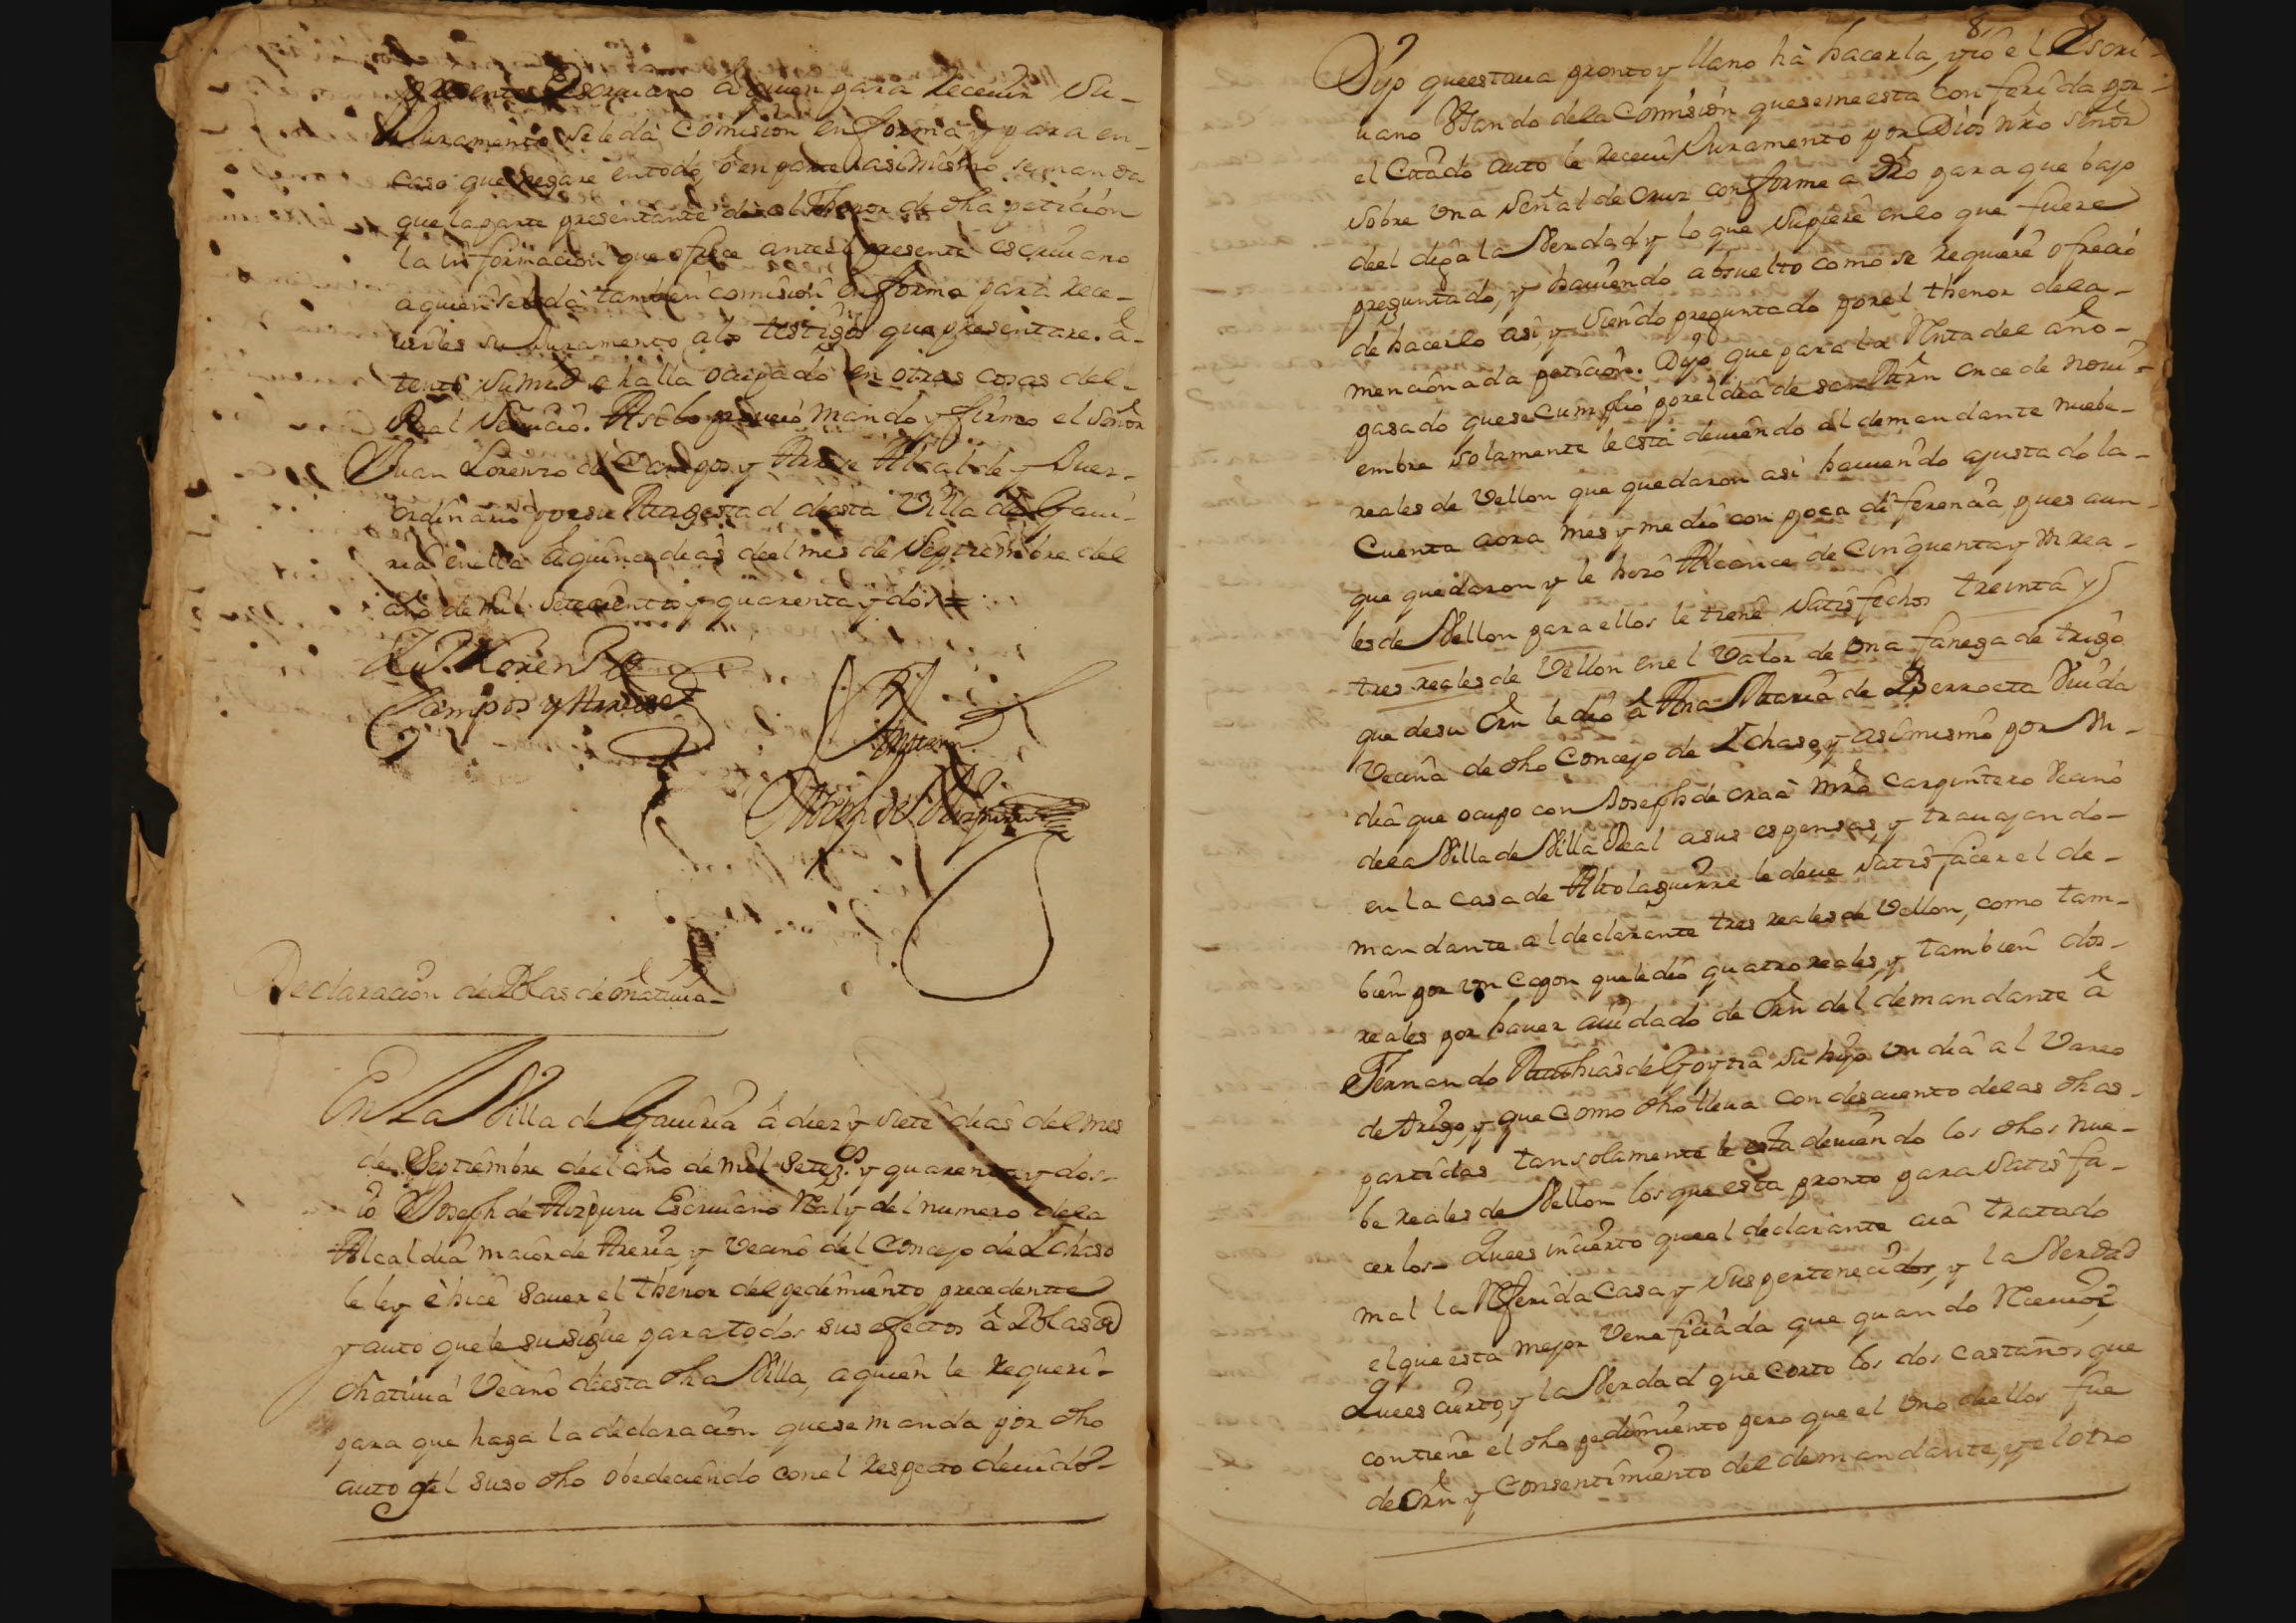 presente Escriuano â quien para Receuir su-
Juramento se le dà Comision en forma y para en-
caso que negare en todo, ò en parte asimismo se manda
que la parte presentante dê al thenor de dha peticion
la informacion que ofrece ante el presente escriuano
a quien se le dà tambien comision en forma para rece-
uirles su Juramento a los testigos que presentare. â-
tento su mrd se halla ocupado en otras cosas del-
Real seruicio. Asi lo proueiò mandò y firmò el señor
Juan Lorenzo de Campos y Arrese Alcalde y Juez-
ordinario por su Magestad de esta Villa de Gaui-
ria en ella â quince dias de el mes de Septiembre del
año de mil setecientos y quarenta y dos=
Juº. Lorenzo
Campos y Arrese
Ante mi
Joseph de Aizpuru
Declaracion de Blas de oñatiuia-
En La Villa de Gauiria â diez y siete dias del mes
de Septiembre de el año de mil setezs. y quarenta y dos-
io Joseph de Aizpuru Escriuano Real y del numero de la
Alcaldia maior de Areria y Vecino del Concejo de Ichaso
le ley è hice sauer el thenor del pedimiento precedente
y auto que le subsigue para todos sus efectos â Blas de
oñatiuia Vecino de esta dha Villa, a quien le requeri-
para que haga la declaracion que se manda por dho
auto y el suso dho obedeciendo con el respecto deuido-
8,
Dijo que estaua pronto y llano hà hacerla, y iò el Escri-
uano Usando de la Comision que se me esta conferida por-
el Citado auto le receui Juramento por Dios nrō señor
sobre una señal de Cruz conforme a dro para que bajo
de el diga la Verdad y lo que supiere en lo que fuere
preguntado, y hauiendo absuelto como se requiere ofreciò
de hacerlo asi, y siendo preguntado por el thenor de la-
mencionada peticion. Dijo que para la Renta del año-
pasado que se cumpliò por el dia de san Mrn once de noui-
embre solamente le està deuiendo al demandante nuebe-
reales de Vellon que quedaron asi hauiendo ajustado la-
Cuenta aora mes y medio con poca diferencia, pues aun-
que quedaron y le hizò Alcance de Cinquenta y un rea-
les de Vellon para ellos le tiene satisfechos treinta y
tres reales de Vellon en el Valor de una fanega de trigo
que de su Orn le diò â Ana Maria de Berroeta Viuda
Vecina de dho Concejo de Ichaso, y asimismo por un-
dia que ocupò con Joseph de oraà mrō Carpintero Vecino
de la Villa de Villa Real a sus espensas, y trauajando-
en la Casa de Altolaguirre le deue satisfacer el de-
mandante al declarante tres reales de Vellon, como tam-
bien por un capon que le diò quatro reales, y tambien dos-
reales por hauer aiudado de Orn del demandante â
Fernando Mathias de Goytia su hijo un dia al Vareo
de trigo, y que como dho lleua con descuento de las dhas-
partidas tan solamente le està deuiendo los dhos nue-
be reales de Vellon los que està pronto para satisfa-
cerlos- Que es incierto que el declarante aià tratado
mal la Referida Casa y sus pertenecidos, y la Verdad
el que esta mejor Veneficiada que quando Receuiò,
Que es cierto, y la Verdad que corto los dos castaños que
contiene el dho pedimiento pero que el uno de ellos fue
de Orn y consentimiento del demandante, y el otro